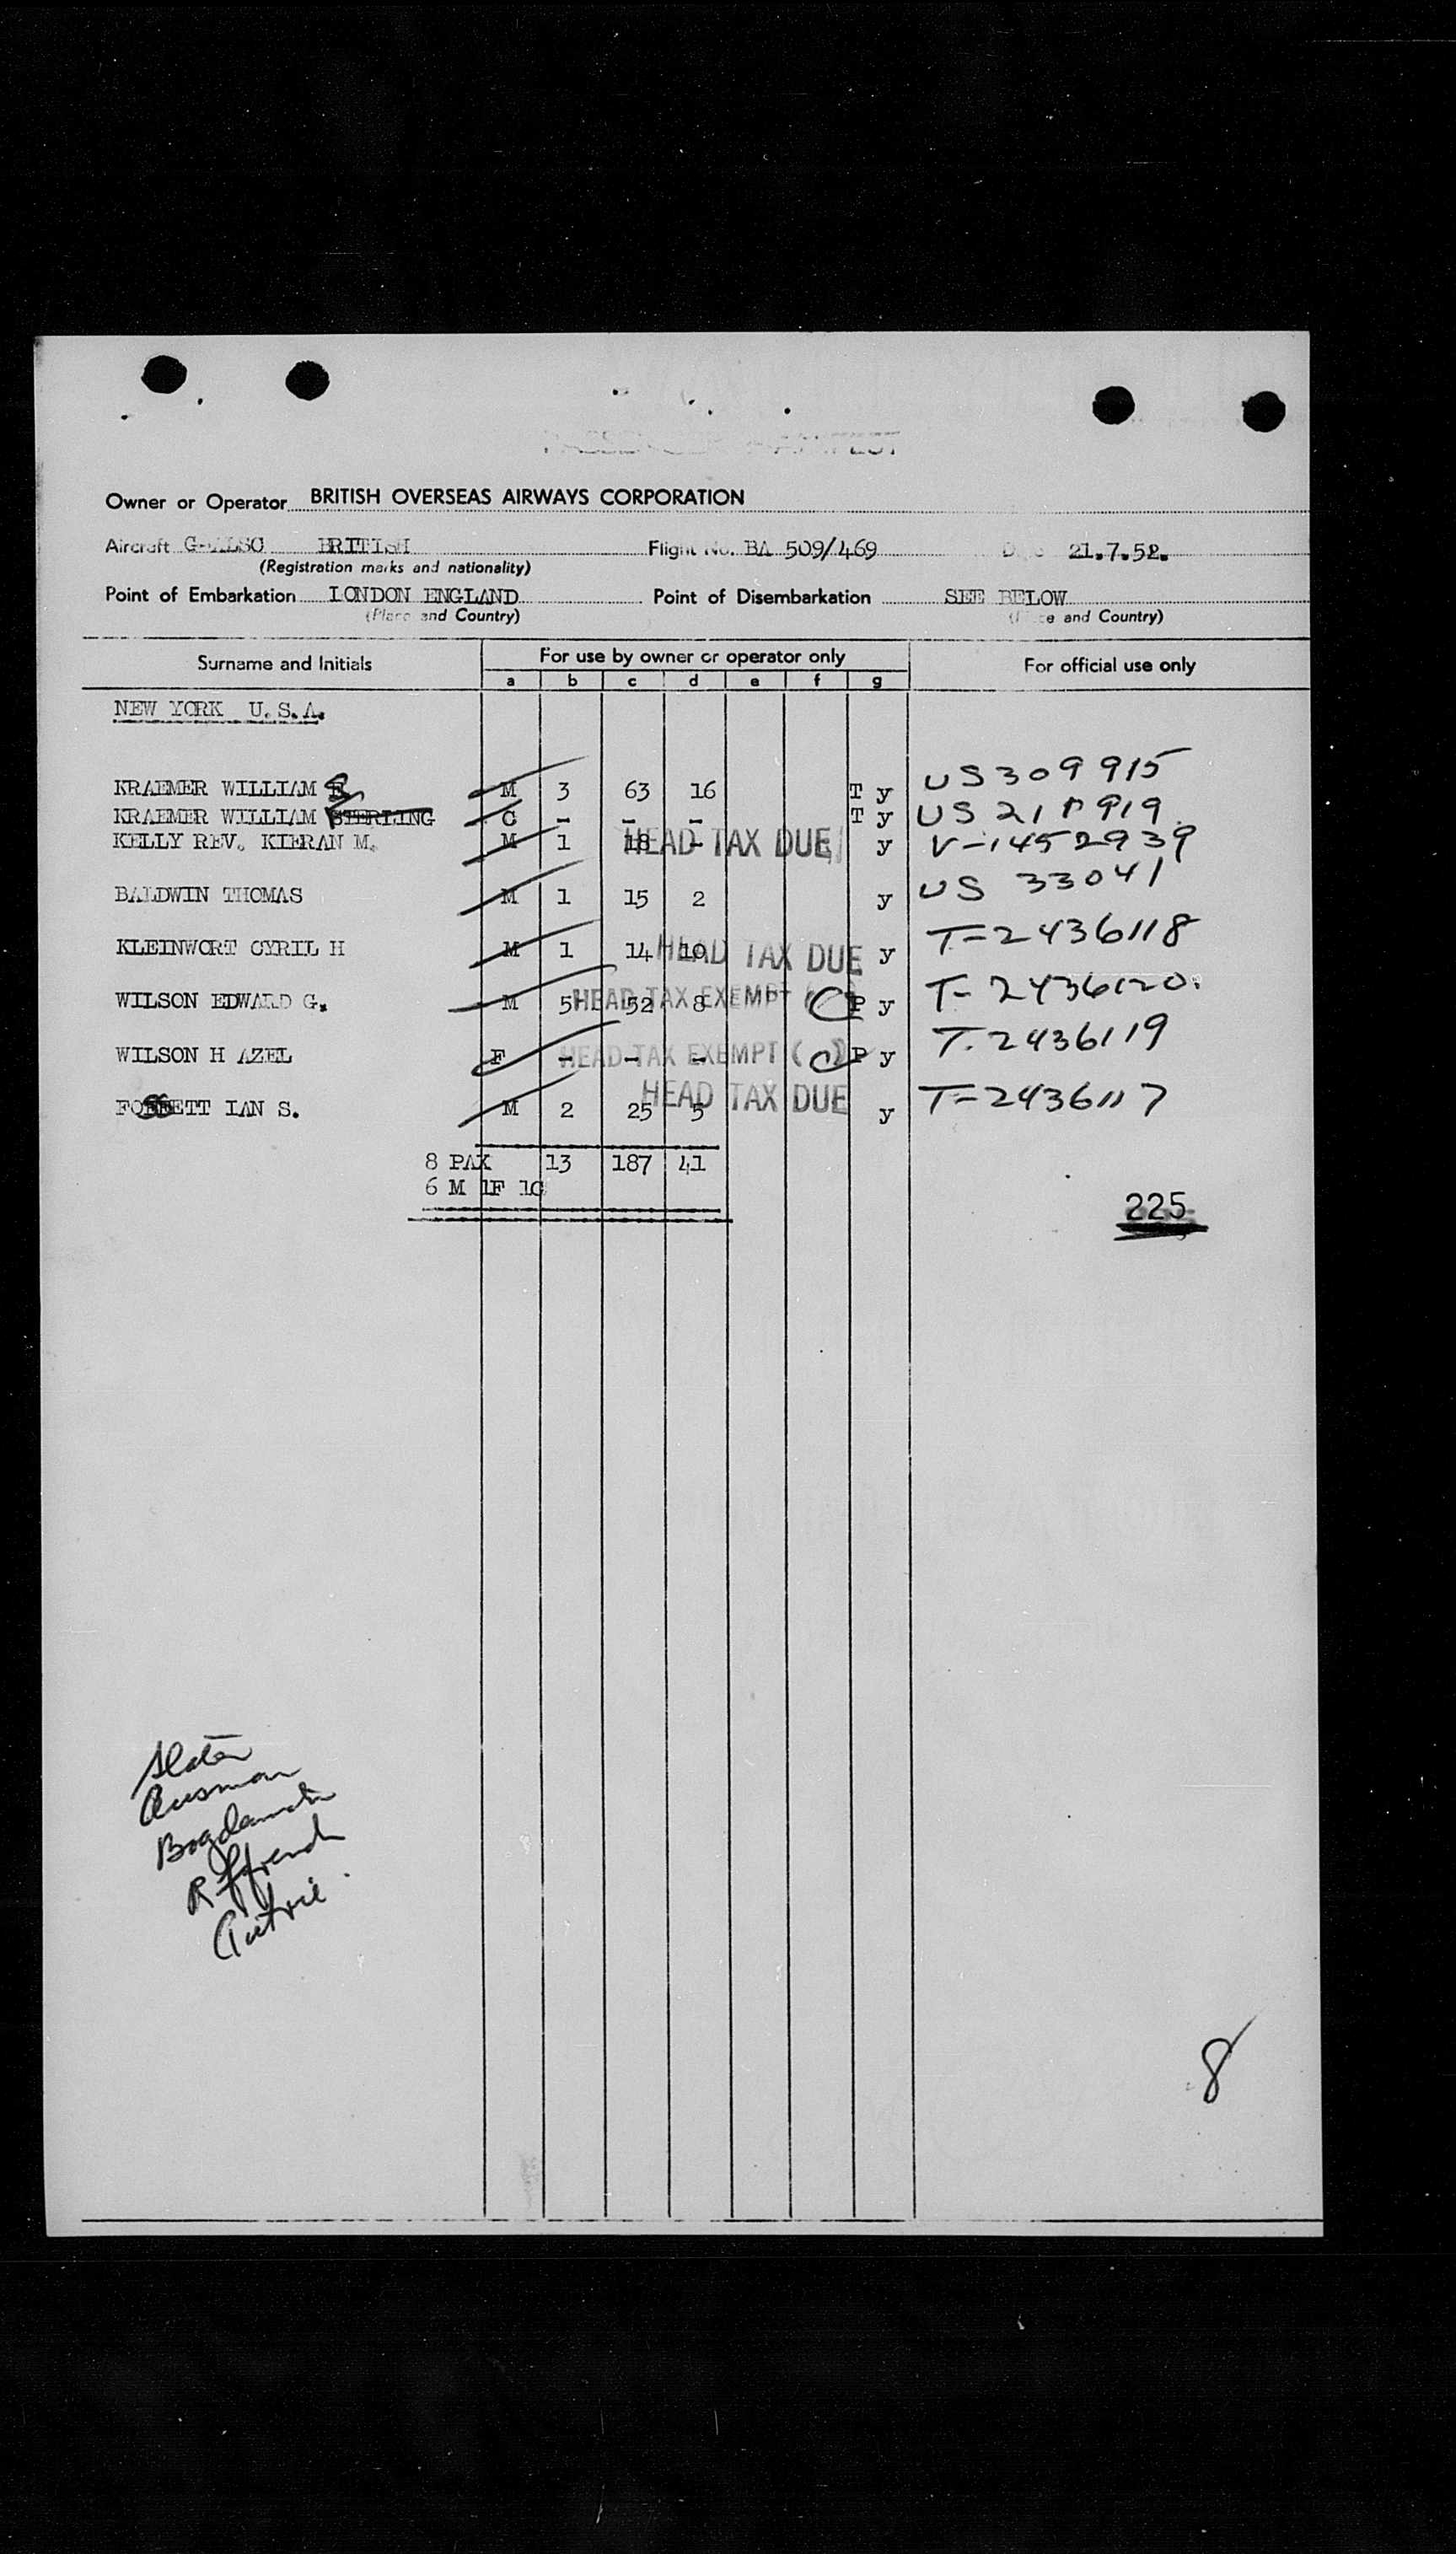 PASSENGER MANIFEST
Owner or Operator BRITISH OVERSEAS AIRWAYS CORPORATION
Aircraft G-ALSC BRITISH Flight No. BA 509/469 Date 21.7.52.
(Registration marks and nationality)
Point of Embarkation LONDON ENGLAND Point of Disembarkation SEE BELOW
(Place and Country) (Place and Country)
Surname and Initials For use by owner or operator only For official use only
a b c d e f g
NEW YORK U.S.A.
KRAEMER WILLIAM M 3 63 16 T y US 309915
KRAEMER WILLIAM STERLING C - - - T y US
KELLY REV. KIERAN M. M 1 18 - HEAD TAX DUE y V-1452939
BALDWIN THOMAS M 1 15 2 y US 33041
KLEINWORT CYRIL H M 1 14 10 HEAD TAX DUE y T=2436118
WILSON EDWARD G. M 5 52 8 HEAD TAX EXEMPT (C) P y T-2436120.
WILSON H AZEL F - - - HEAD TAX EXEMPT (C) P y T.2436119
FOSSETT IAN S. M 2 25 5 HEAD TAX DUE y T=2436117
8 PAX 13 187 41
6 M 1F 1C
225
Slater
Ausman
R ffrench
Gutrie
8